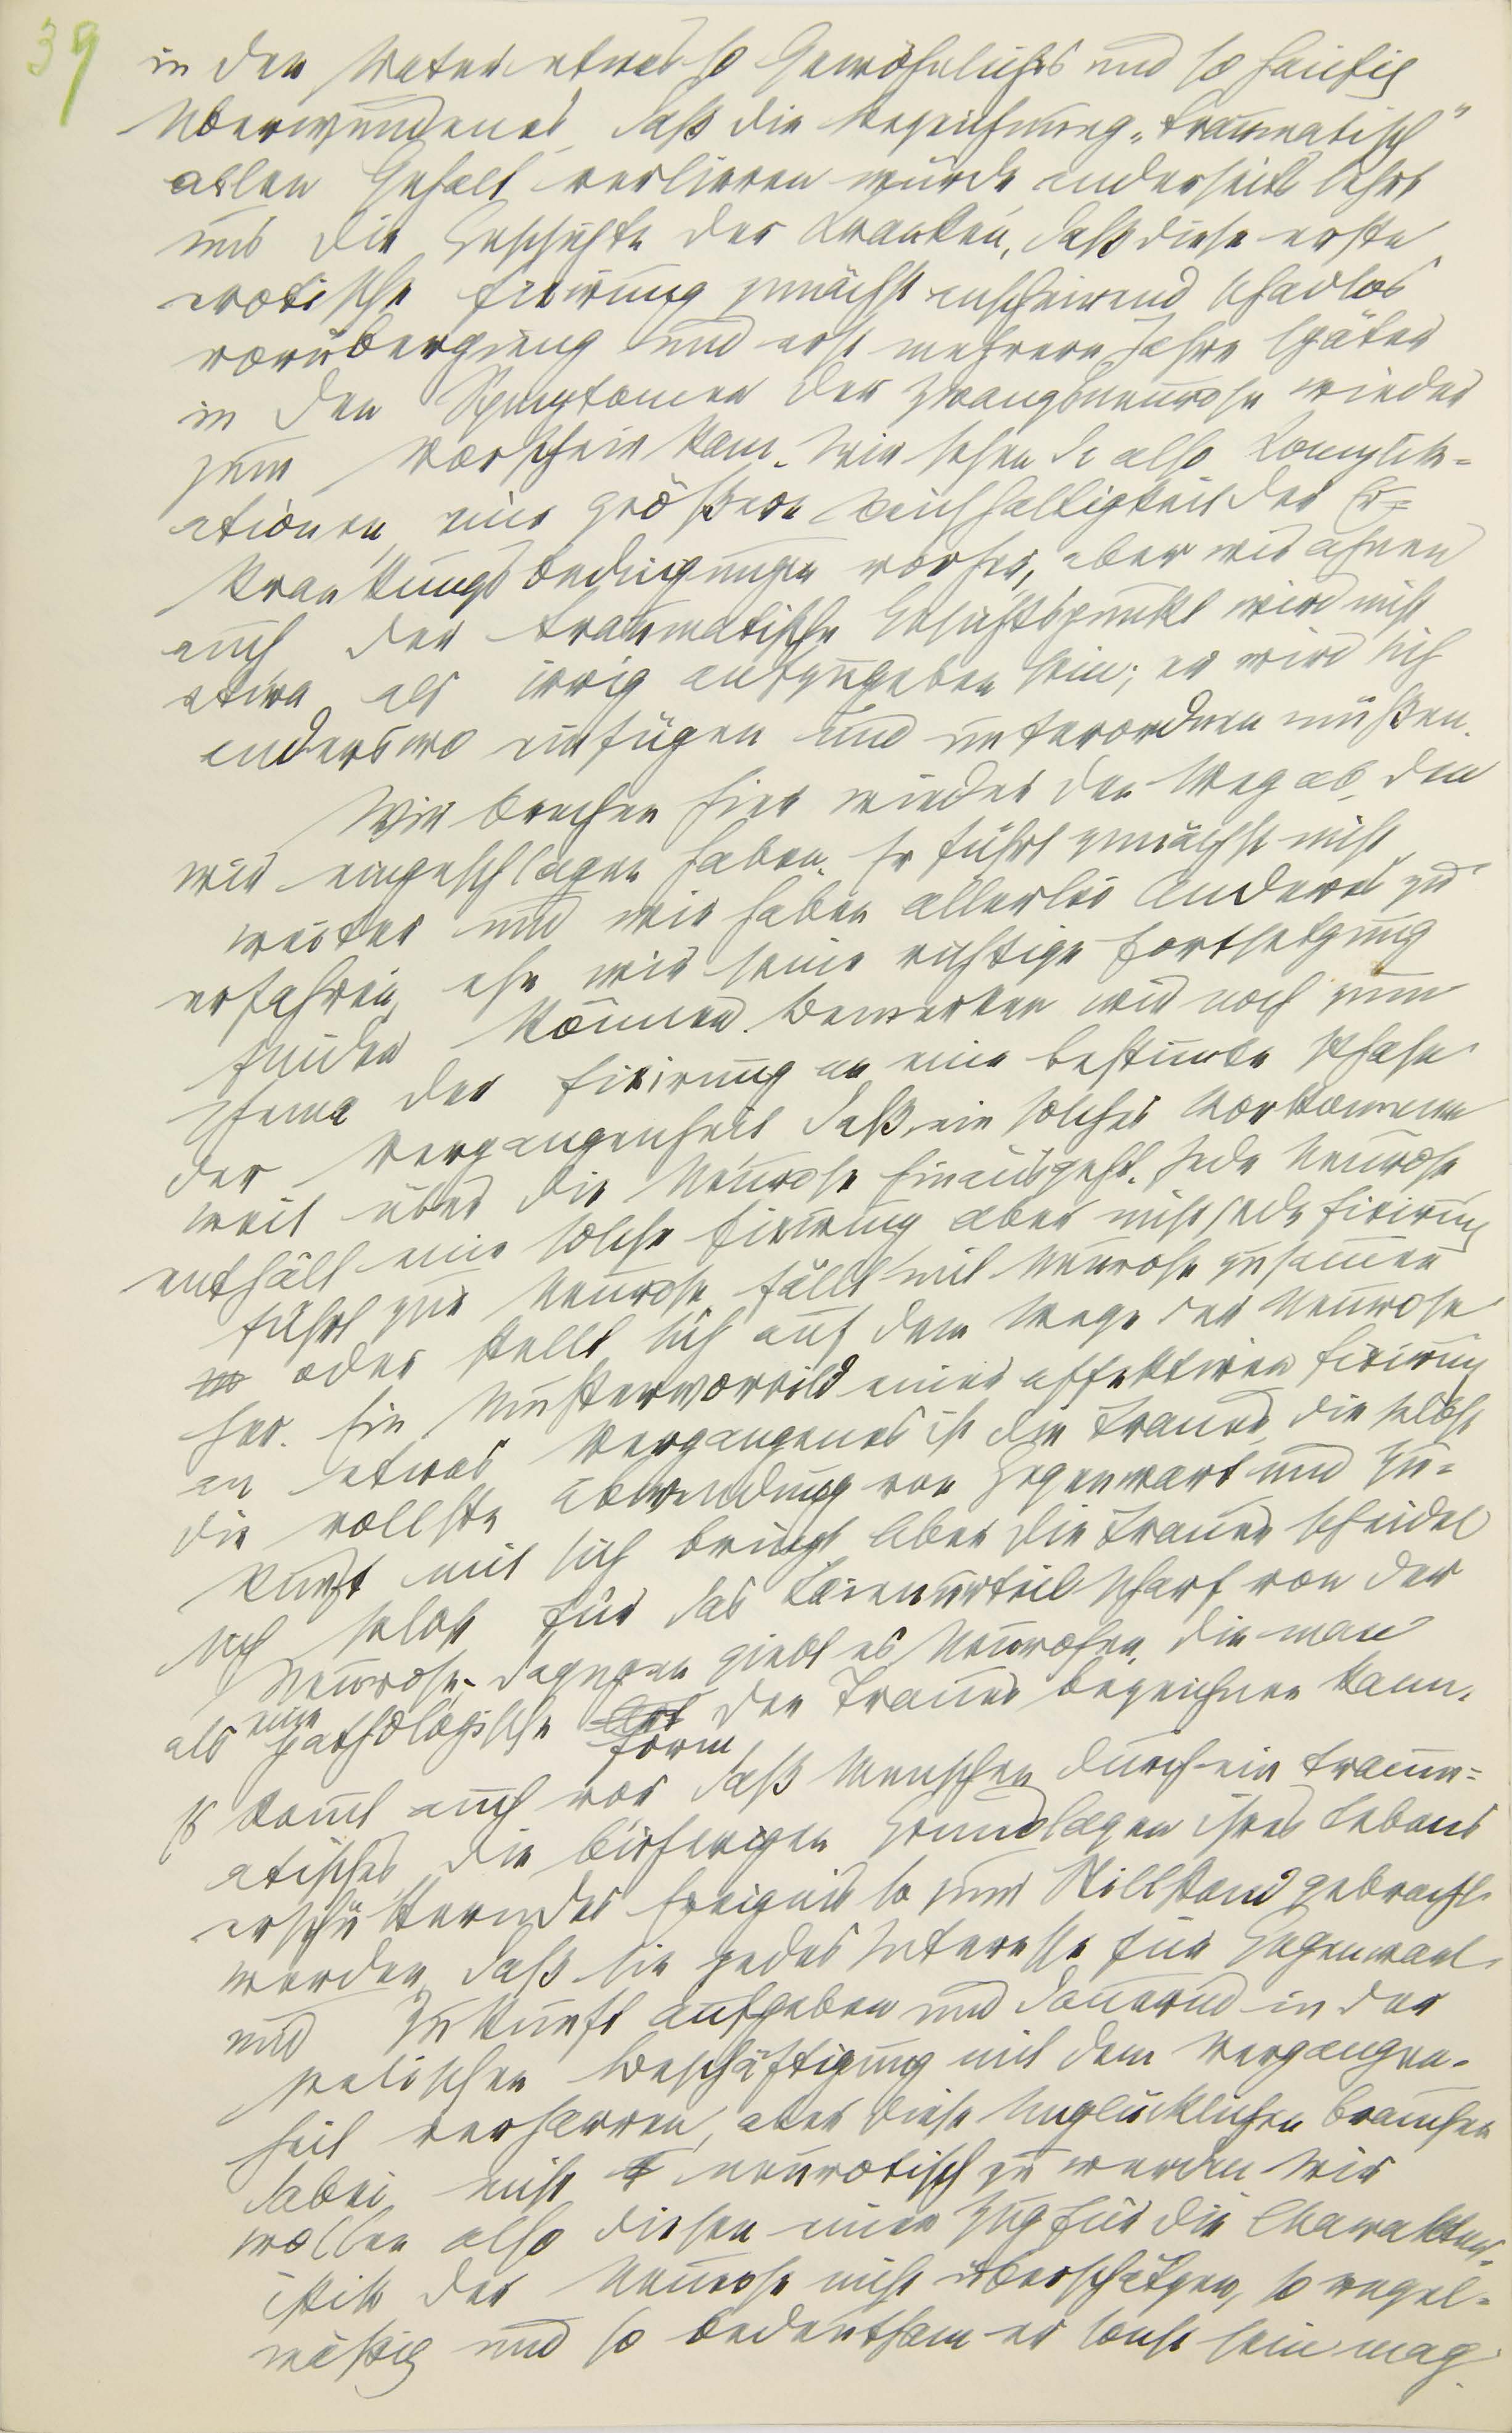 39
in den Vater etwas so Gewöhnliches und so häufig
Überwundenes, daß die Bezeichnung „traumatisch"
allen Gehalt verlieren würde, anderseits lehrt
uns die Geschichte der Kranken, daß diese erste
erotische Fixirung zunächst anscheinend schadlos
vorüberging und erst mehrere Jahre später
in den Symptomen der Zwangsneurose wieder
zum Vorschein kam. Wir sehen da also Komplik-
ationen, eine größere Reichhaltigkeit der Er-
krankungsbedingungen vorher, aber wir ahnen
auch, der traumatische Gesichtspunkt wird nicht
etwa als irrig aufzugeben sein; er wird sich
anderswo einfügen und unterordnen müßen.
Wir brechen hier wieder den Weg ab, den
wir eingeschlagen haben. Er führt zunächst nicht
weiter und wir haben allerlei Anderes zu
erfahren, ehe wir seine richtige Fortsetzung
finden können. Bemerken wir noch zum
Thema der Fixirung an eine bestimmte Phase
der Vergangenheit, daß ein solches Vorkommen
weit über die Neurose hinausgeht. Jede Neurose
enthält eine solche Fixirung, aber nicht jede Fixirung
führt zur Neurose, fällt mit Neurose zusammen
oder stellt sich auf dem Wege der Neurose
her. Ein Mustervorbild einer affektiven Fixirung
an etwas Vergangenes ist die Trauer, die selbst
die vollste Abwendung von Gegenwart und Zu-
kunft mit sich bringt. Aber die Trauer scheidet
sich selbst für das Laienurteil scharf von der
Neurose. Dagegen giebt es Neurosen, die man
als eine pathologische Art Form der Trauer bezeichnen kann.
Es kommt auch vor, daß Menschen durch ein traum-
atisches, die bisherigen Grundlagen ihres Lebens
erschütterndes Ereignis so zum Stillstand gebracht
werden, daß sie jedes Interesse für Gegenwart
und Zukunft aufgeben und dauernd in der
seelischen Beschäftigung mit dem Vergangen-
heit verharren, aber diese Unglücklichen brauchen
dabei nicht neurotisch zu werden. Wir
wollen also diesen einen Zug für die Charakter-
istik der Neurose nicht überschätzen, so regel-
mäßig und so bedeutsam er sonst sein mag.